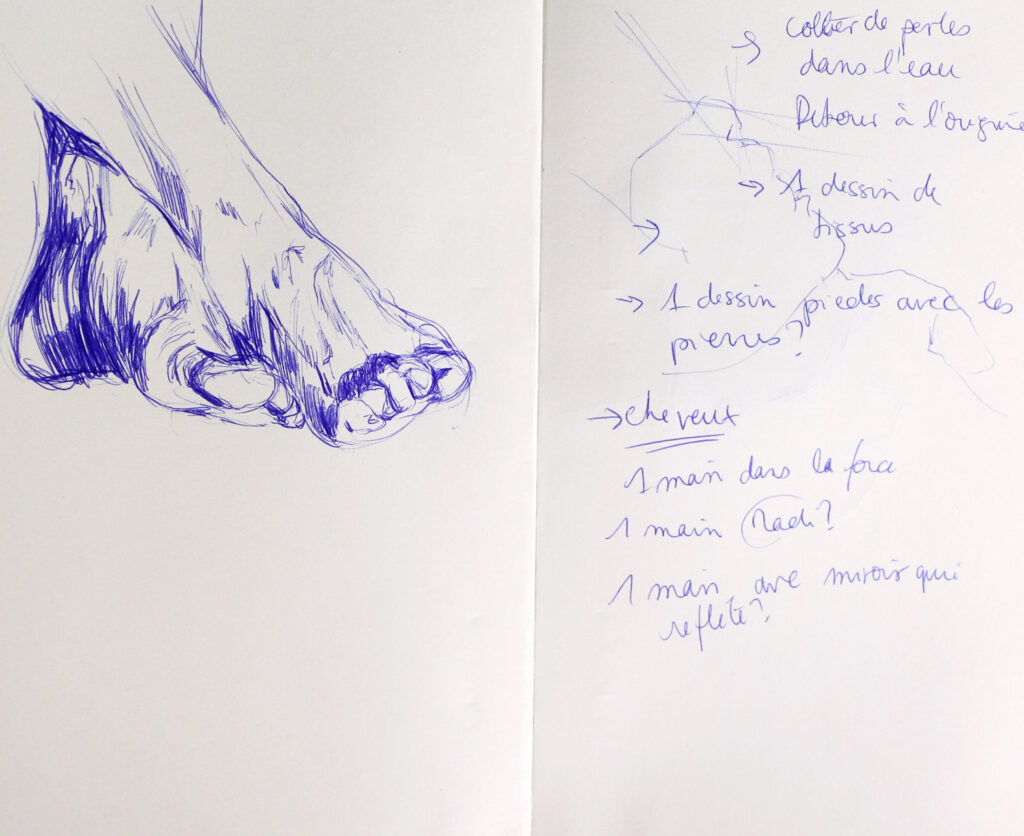 → Collier de perles
dans l'eau
Retour à l'origine
→ 1 dessin de
tissus
→
→ 1 dessin piedes avec les
pierres?
→ cheveux
1 main dans la
1 main
1 main ave miroir qui
reflète?